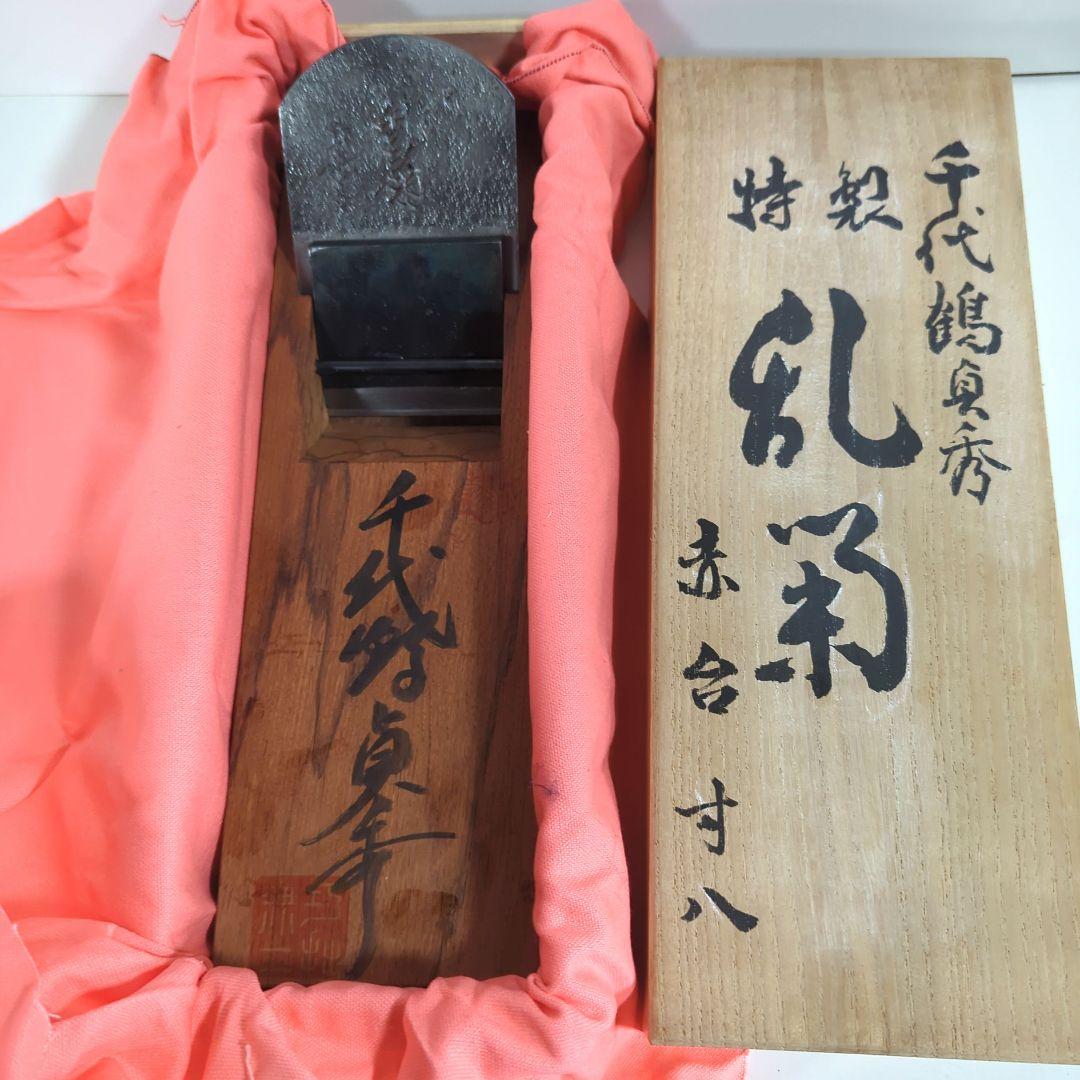 千代鶴貞秀
特製
乱菊
赤台寸八
千代鶴貞秀